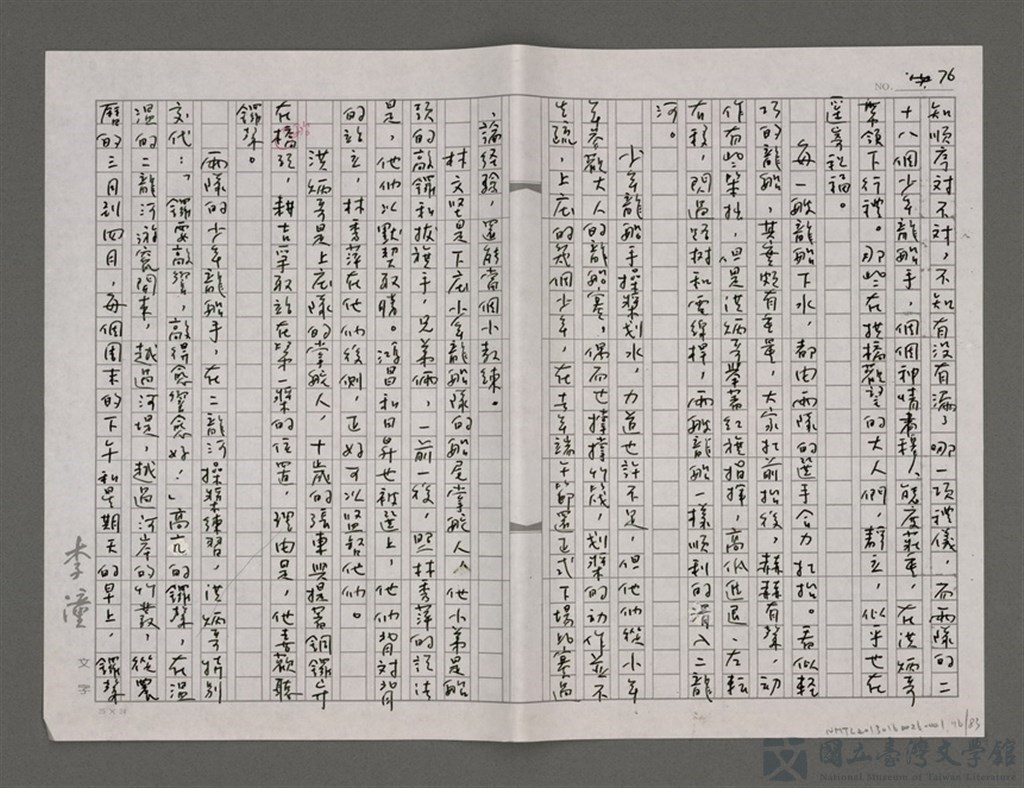 NO. 76
知順序對不對，不知有沒有漏了哪一項禮儀，而兩隊的二
十八個少年龍船手，個個神情肅穆，態度莊重，在洪炳哥
帶領下行禮。那些在拱橋觀望的大人們，靜立，似乎也在
匿寄祝福。
每一艘龍船下水，都由兩隊的選手合力扛抬。看似輕
巧的龍船，其實頗有重量，大家扛前抬後，赫赫有聲，動
作有些笨拙，但是洪炳哥舉著紅旗指揮，高低進退、左転
右移，閃過路樹和電線桿，兩艘龍船一樣順利的滑入二龍
河。
少年龍船手操槳划水，力道也許不足，但他們從小年
年參觀大人的龍船賽，偶而也撐撐竹筏，划槳的動作並不
生疏，上庄的幾個少年，在去年端午節還正式下場比賽過
，論經驗，還能當個小教練。
林文堅是下庄少年龍船隊的船尾掌舵人，他小弟是船
頭的敲鑼和拔旗手，兄弟倆，一前一後，照林秀萍的說法
是，他們以默契取勝。鴻昌和日昇也被選上，他們背對背
的站立，林秀萍在他們後側，正好可以監督他們。
洪炳哥是上庄隊的掌舵人，十歲的張東興提著銅鑼站
在橋頭，耕吉爭取站在第一槳的位置，理由是，他喜歡聽
鑼聲。
兩隊的少年龍船手，在二龍河操槳練習，洪炳哥特別
交代：「鑼要敲響，敲得愈響愈好！」高亢的鑼聲，在溫
溫的二龍河游竄開來，越過河堤，越過河岸的竹叢，從農
曆的三月到四月，每個周末的下午和星期天的早上，鑼聲
李潼
文字
25 × 24
NMTL20130160026-001 76/83
國立臺灣文學館
National Museum of Taiwan Literature